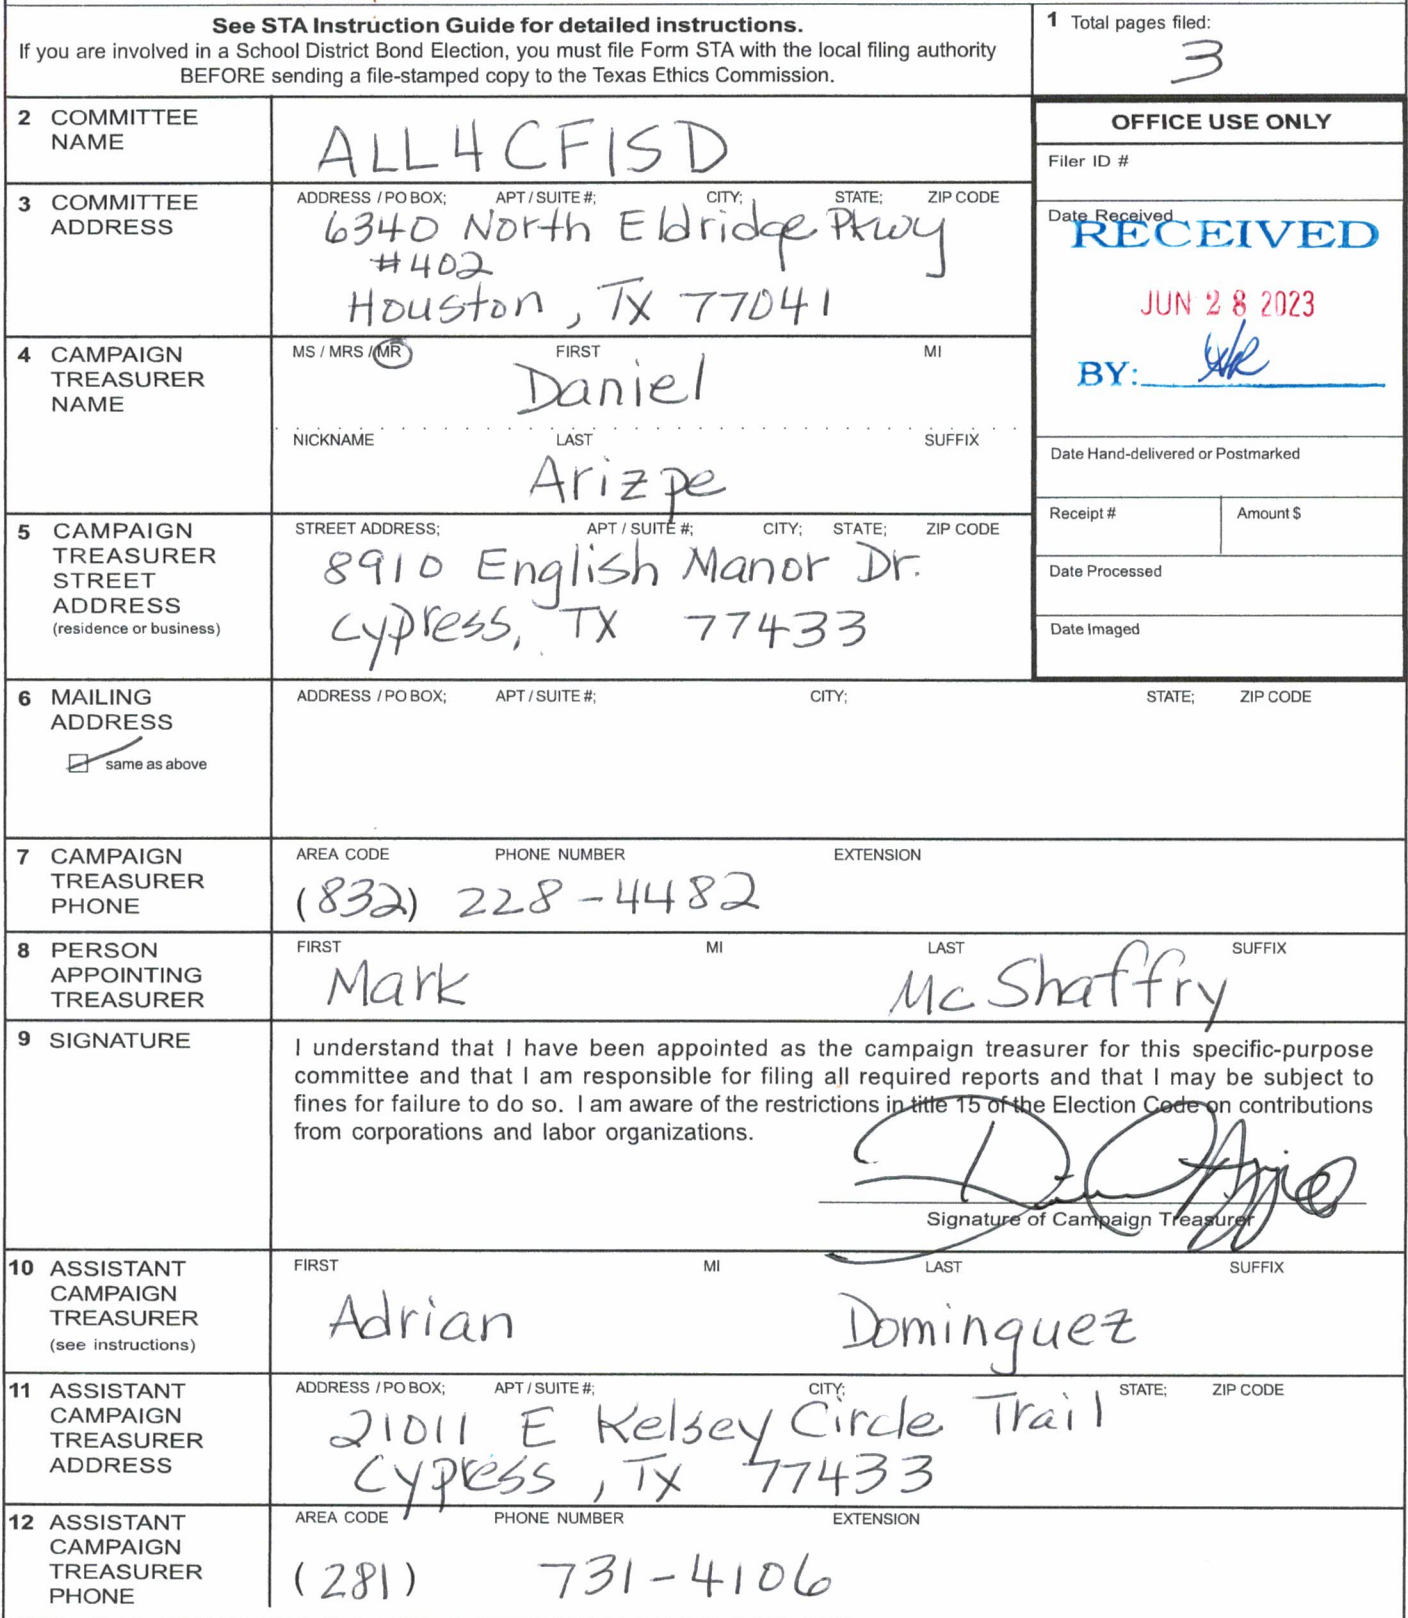 See STA Instruction Guide for detailed instructions.
If you are involved in a School District Bond Election, you must file Form STA with the local filing authority
BEFORE sending a file-stamped copy to the Texas Ethics Commission.
1 Total pages filed:
3
2 COMMITTEE
NAME
ALL4CFISD
OFFICE USE ONLY
Filer ID #
3 COMMITTEE
ADDRESS
ADDRESS / PO BOX; APT / SUITE #; CITY; STATE; ZIP CODE
6340 North Eldridge Pkwy
#402
Houston, TX 77041
Date Received
RECEIVED
JUN 28 2023
BY:
4 CAMPAIGN
TREASURER
NAME
MS / MRS / MR FIRST MI
Daniel
NICKNAME LAST SUFFIX
Arizpe
Date Hand-delivered or Postmarked
Receipt # Amount $
Date Processed
Date Imaged
5 CAMPAIGN
TREASURER
STREET
ADDRESS
(residence or business)
STREET ADDRESS; APT / SUITE #; CITY; STATE; ZIP CODE
8910 English Manor Dr.
Cypress, TX 77433
6 MAILING
ADDRESS
same as above
ADDRESS / PO BOX; APT / SUITE #; CITY; STATE; ZIP CODE
7 CAMPAIGN
TREASURER
PHONE
AREA CODE PHONE NUMBER EXTENSION
(832) 228-4482
8 PERSON
APPOINTING
TREASURER
FIRST MI LAST SUFFIX
Mark McShaffry
9 SIGNATURE
I understand that I have been appointed as the campaign treasurer for this specific-purpose
committee and that I am responsible for filing all required reports and that I may be subject to
fines for failure to do so. I am aware of the restrictions in title 15 of the Election Code on contributions
from corporations and labor organizations.
Signature of Campaign Treasurer
10 ASSISTANT
CAMPAIGN
TREASURER
(see instructions)
FIRST MI LAST SUFFIX
Adrian Dominguez
11 ASSISTANT
CAMPAIGN
TREASURER
ADDRESS
ADDRESS / PO BOX; APT / SUITE #; CITY; STATE; ZIP CODE
21011 E Kelsey Circle Trail
Cypress, TX 77433
12 ASSISTANT
CAMPAIGN
TREASURER
PHONE
AREA CODE PHONE NUMBER EXTENSION
(281) 731-4106